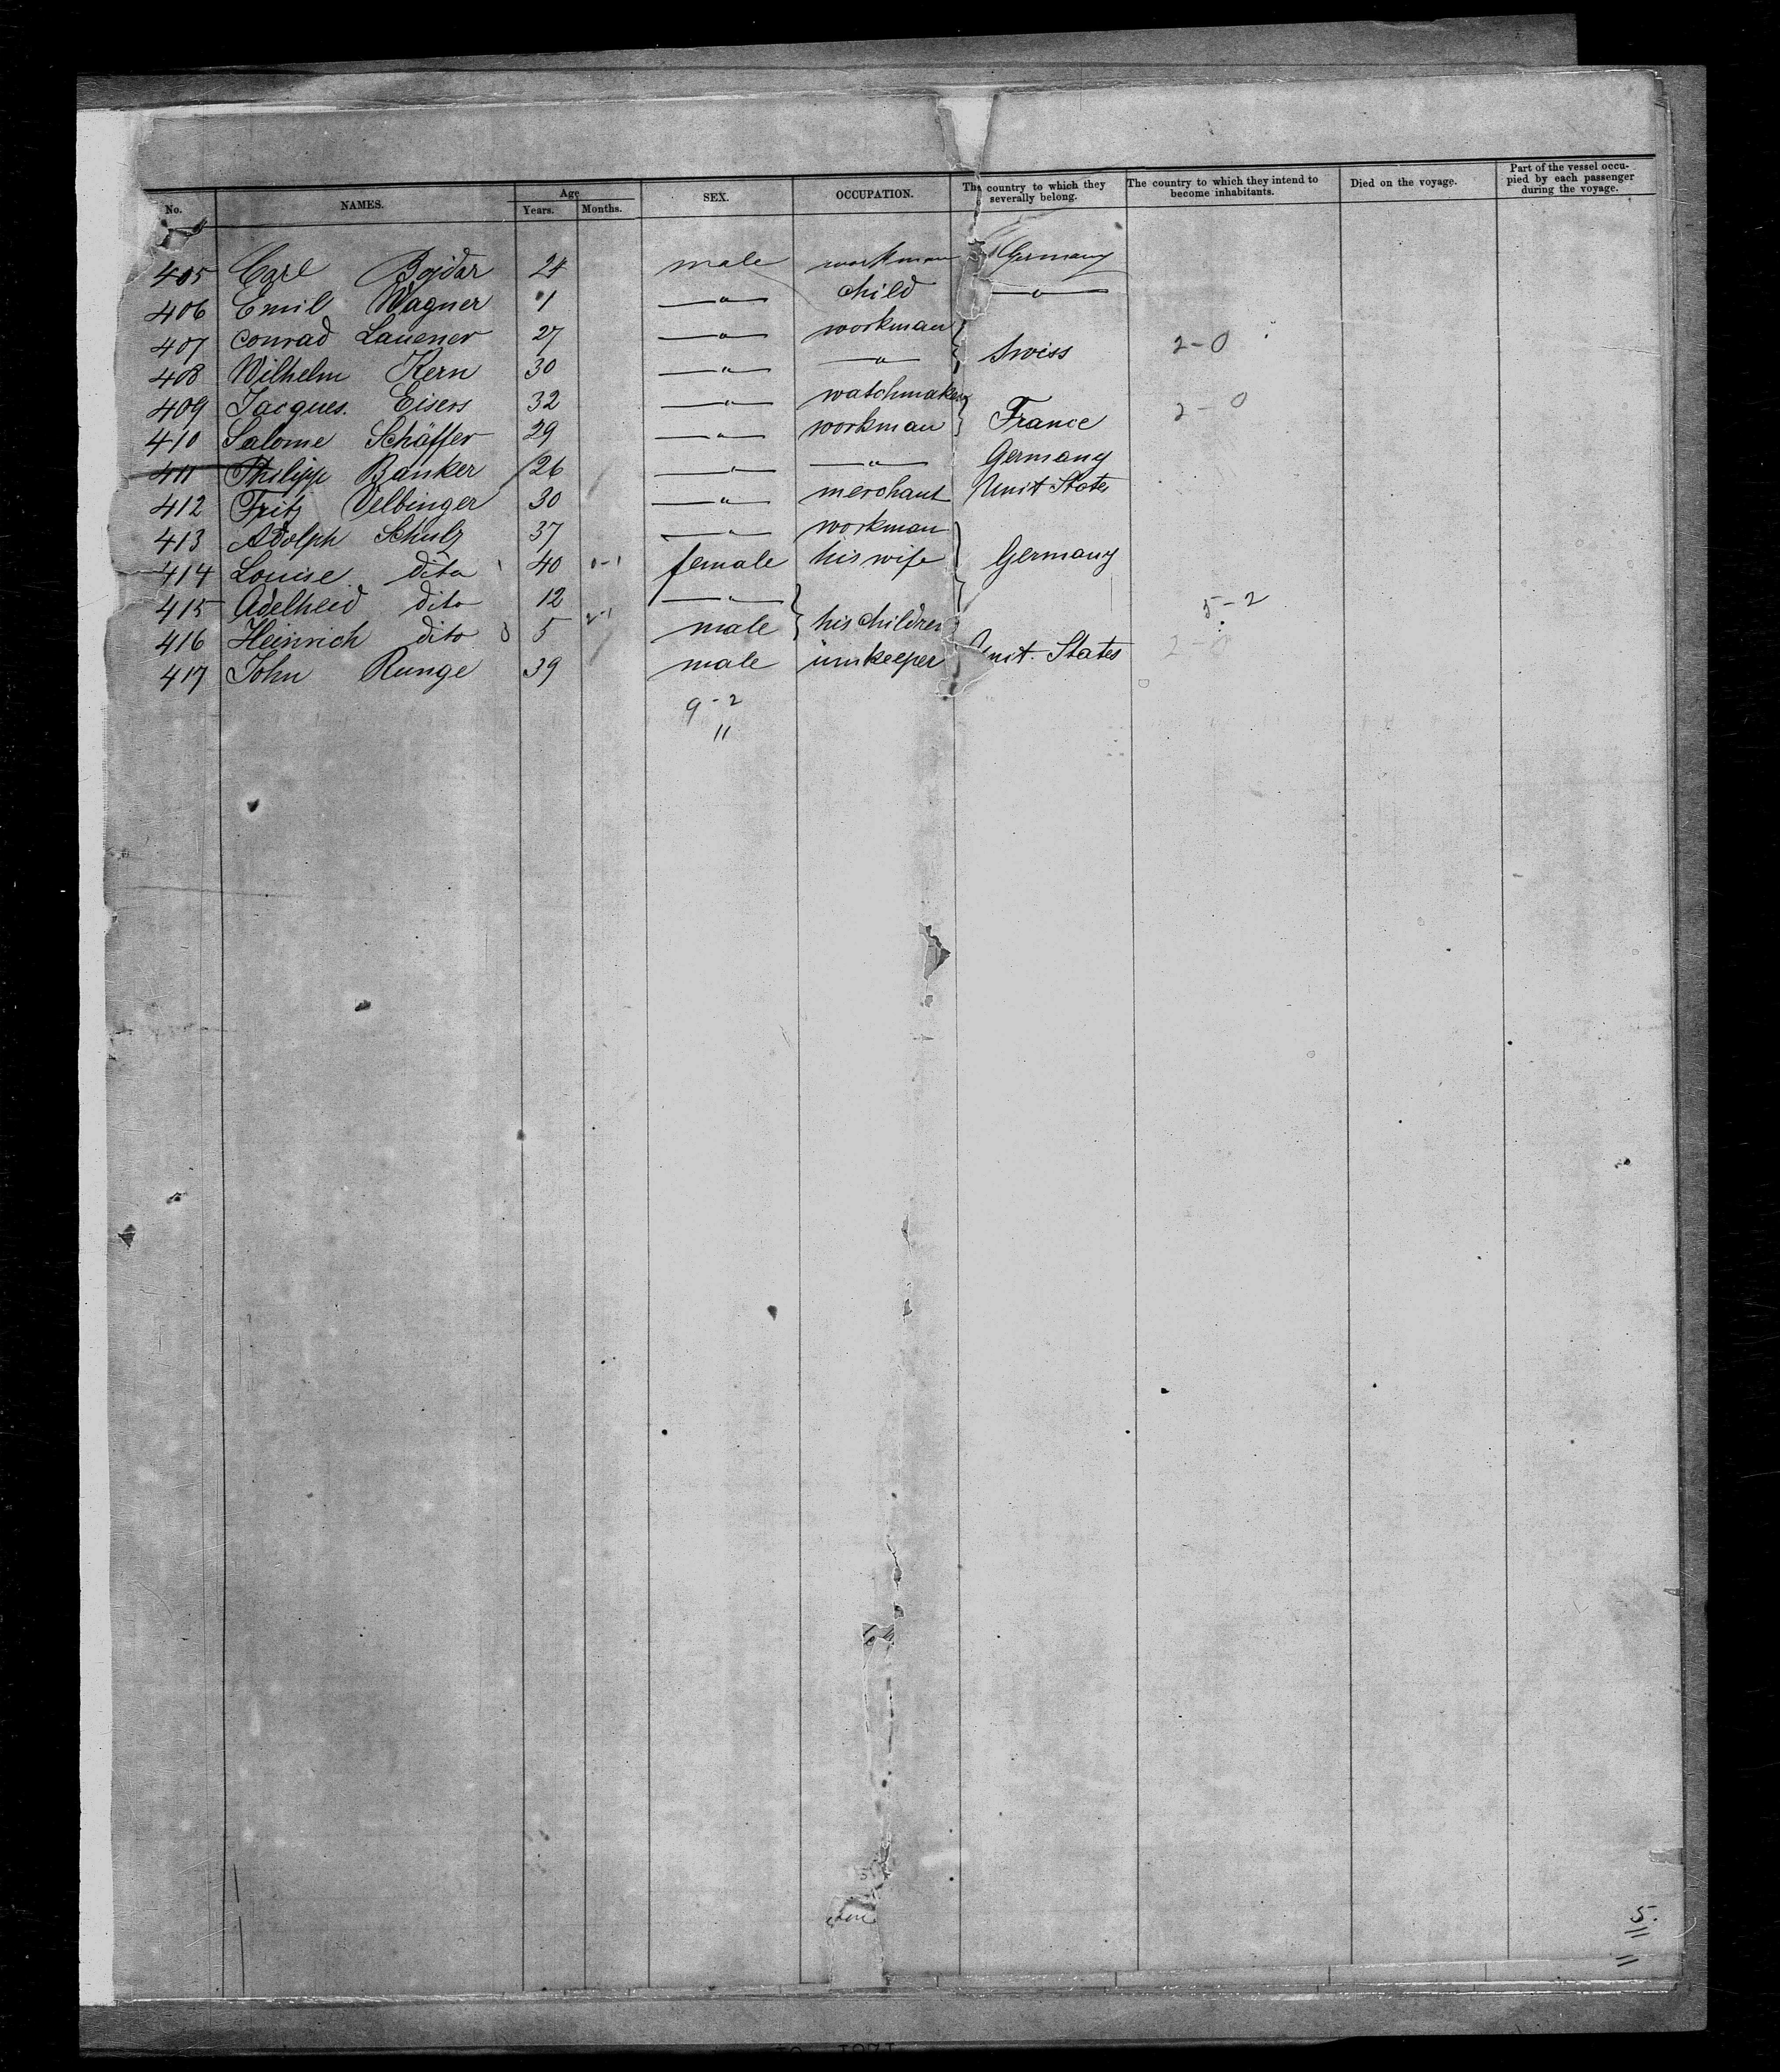 No. NAMES. Age Years. Months. SEX. OCCUPATION. The country to which they severally belong. The country to which they intend to become inhabitants. Died on the voyage. Part of the vessel occupied by each passenger during the voyage.
405 Carl Bojdar 24 male workman Germany
406 Emil Wagner 1 —"— child —"—
407 Conrad Lauener 27 —"— workman
408 Wilhelm Kern 30 —"— —"— Swiss 2-0
409 Jacques Eisers 32 —"— watchmaker
410 Salome Schäffer 29 —"— workman France 2-0
411 Philipp Banker 26 —"— —"— Germany
412 Fritz Velbinger 30 —"— merchant Unit States
413 Adolph Schulz 37 —"— workman
414 Louise dito 40 0-1 female his wife Germany
415 Adelheid dito 12 —"—
416 Heinrich dito 5 male his children 5-2
417 John Runge 39 male innkeeper Unit. States 2-0
9-2
11
5.